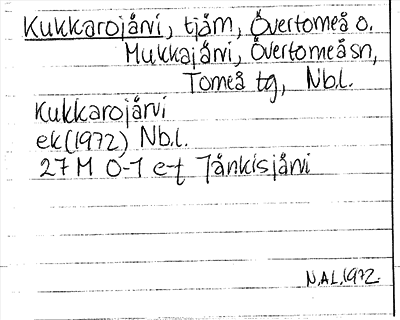 Kukkarojärvi, tjärn, Övertorneå o.
Mukkajärvi, Övertorneå sn,
Torneå tg, Nb.l.
Kukkarojärvi
ek (1972) Nb.l.
27 M 0-1 e-f Jänkisjärvi
N.Ä.L.1972.